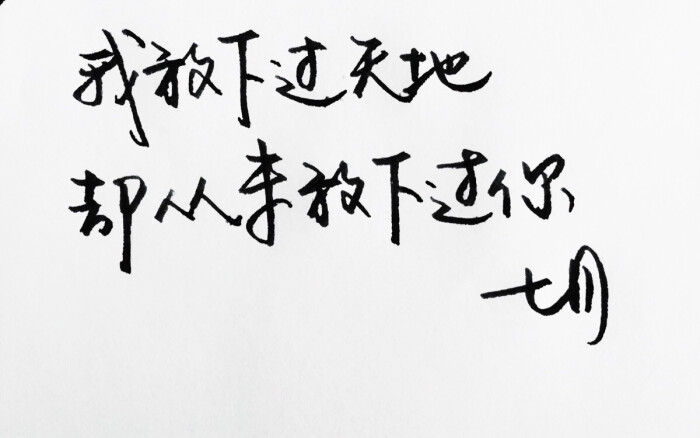 我放下过天地
却从未放下过你
七月